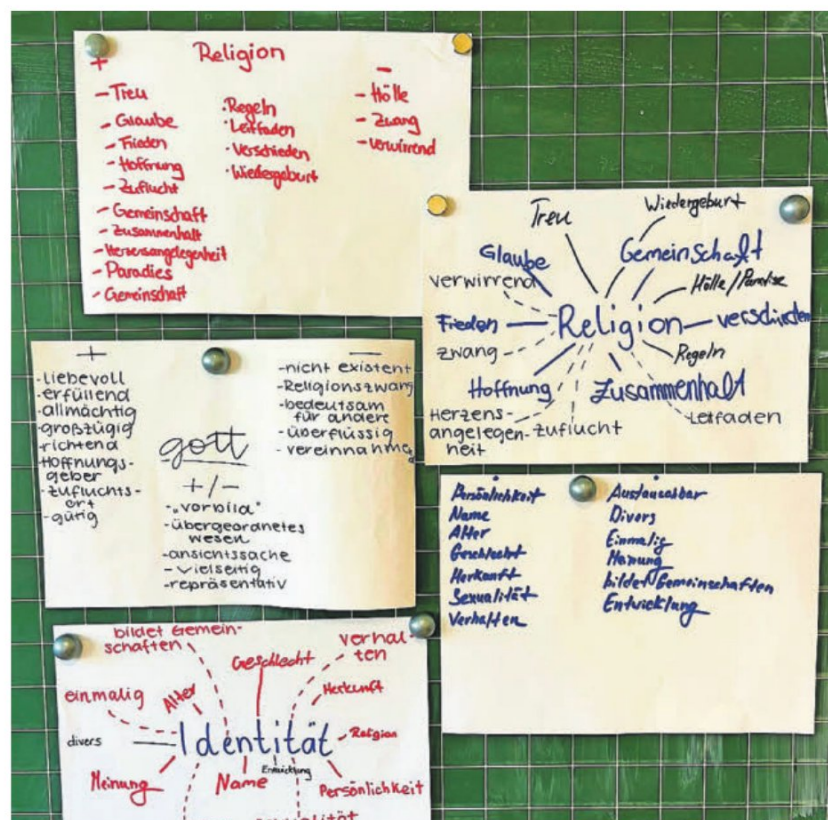 Religion
+
- Treu
- Glaube
- Frieden
- Hoffnung
- Zuflucht
- Gemeinschaft
- Zusammenhalt
- Herzensangelegenheit
- Paradies
- Gemeinschaft
• Regeln
• Leitfaden
• Verschieden
• Wiedergeburt
-
- Hölle
- Zwang
- verwirrend
Treu
Wiedergeburt
Glaube
Gemeinschaft
verwirrend
Hölle/Paradise
Frieden
Religion
verschieden
zwang
Regeln
Hoffnung
Zusammenhalt
Leitfaden
Herzens-
angelegen-
heit
zuflucht
+
- liebevoll
- erfüllend
- allmächtig
- großzügig
- richtend
- Hoffnungs-
geber
- zufluchts-
ort
- gütig
gott
+/-
- „vorbild“
- übergeordnetes
wesen
- ansichtssache
- vielseitig
- repräsentativ
-
- nicht existent
- Religionszwang
- bedeutsam
für andere
- überflüssig
- vereinnahmend
Persönlichkeit
Name
Alter
Geschlecht
Herkunft
Sexualität
Verhalten
Divers
Einmalig
Meinung
bildet Gemeinschaften
Entwicklung
bildet Gemein-
schaften
Geschlecht
verhal-
ten
einmalig
Alter
Herkunft
divers
Identität
Religion
Entwicklung
Meinung
Name
Persönlichkeit